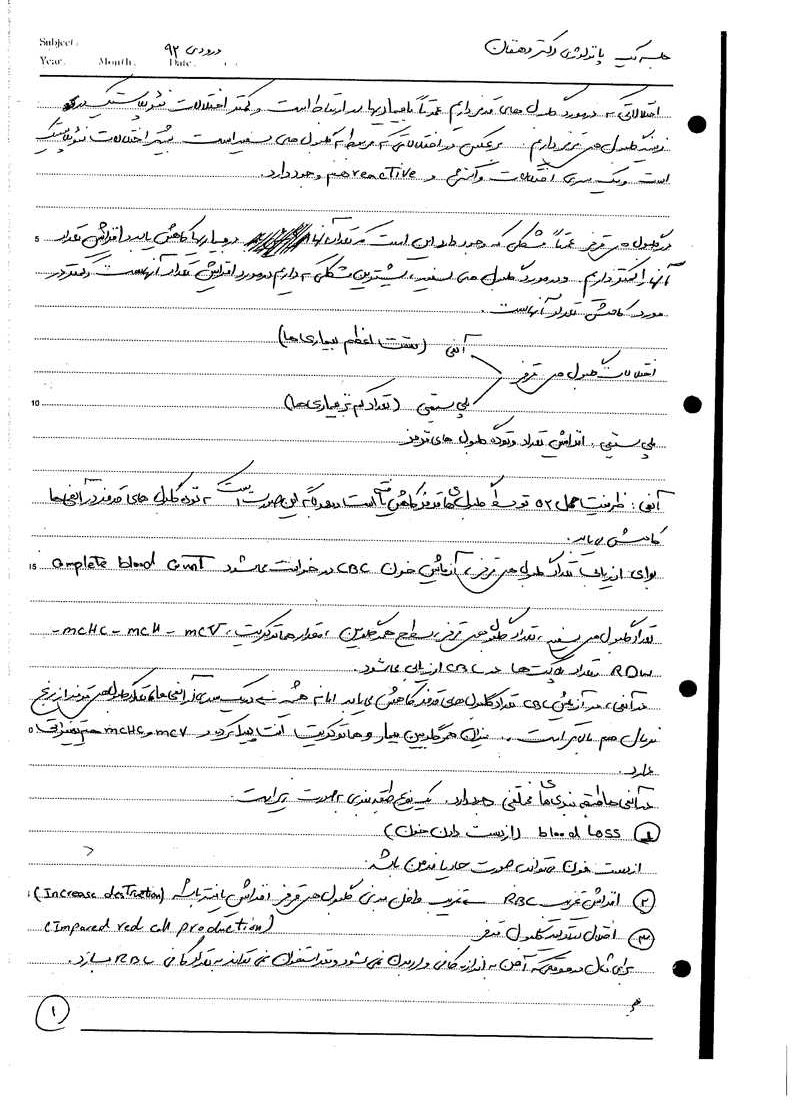 Subject:
Year. Month. Date.
ورودی ۹۲
جلسه یک پاتولوژی دکتر دهقان
اختلالاتی که در مورد گلبول های قرمز داریم عمدتاً با بیماریها در ارتباط است و کمتر اختلالات نئوپلاستیک در
زمینه گلبول های قرمز داریم. برعکس در اختلالاتی که مربوط به گلبول های سفید است بیشتر اختلالات نئوپلاستیک
است و یک سری اختلالات واکنشی و reactive هم وجود دارد.
در گلبول های قرمز عمدتاً مشکلی که وجود دارد این است که تعداد آنها در بیماریها کاهش یابد و افزایش تعداد
5
آنها را کمتر داریم. و در مورد گلبول های سفید، بیشترین مشکلی که داریم در مورد افزایش تعداد آنهاست و کمتر در
مورد کاهش تعداد آنهاست.
آنمی (قسمت اعظم بیماری ها)
اختلالات گلبول های قرمز
پلی سیتمی (تعداد کم تر بیماری ها)
10
پلی سیتمی: افزایش تعداد و توده گلبول های قرمز
آنمی: ظرفیت حمل O2 توسط گلبول های قرمز کاهش یافته است و دیگر به این صورت نیست که توده گلبول های قرمز در آنمی ها
کاهش می یابد.
برای ارزیابی تعداد گلبول های قرمز، آزمایش خون CBC درخواست می شود complete blood count
15
تعداد گلبول های سفید، تعداد گلبول های قرمز، سطح هموگلوبین، مقدار هماتوکریت، MCV - MCH - MCHC -
RDW تعداد پلاکت ها در CBC ارزیابی می شود.
در آنمی، در آزمایش CBC تعداد گلبول های قرمز کاهش می یابد اما نه همیشه در یک سری از آنمی ها تعداد گلبول های قرمز از رنج
نرمال هم بالاتر است ولی میزان هموگلوبین بیمار و هماتوکریت افت پیدا کرده و MCV و MCHC هم تغییراتی
دارد.
در آنمی ها طبقه بندی های مختلفی وجود دارد. یک نوع طبقه بندی به صورت زیر است.
۱ blood loss (از دست دادن خون)
از دست خون می تواند به صورت حاد یا مزمن باشد.
۲ افزایش تخریب RBC تخریب داخل بدنی گلبول های قرمز افزایش یافته باشد (Increase destruction)
۳ اختلال تولید گلبول قرمز (Impared red cell production)
برای مثال در موقعی که آهن به اندازه کافی وارد بدن نمی شود و مغز استخوان نمی تواند به تعداد کافی RBC بسازد.
۱